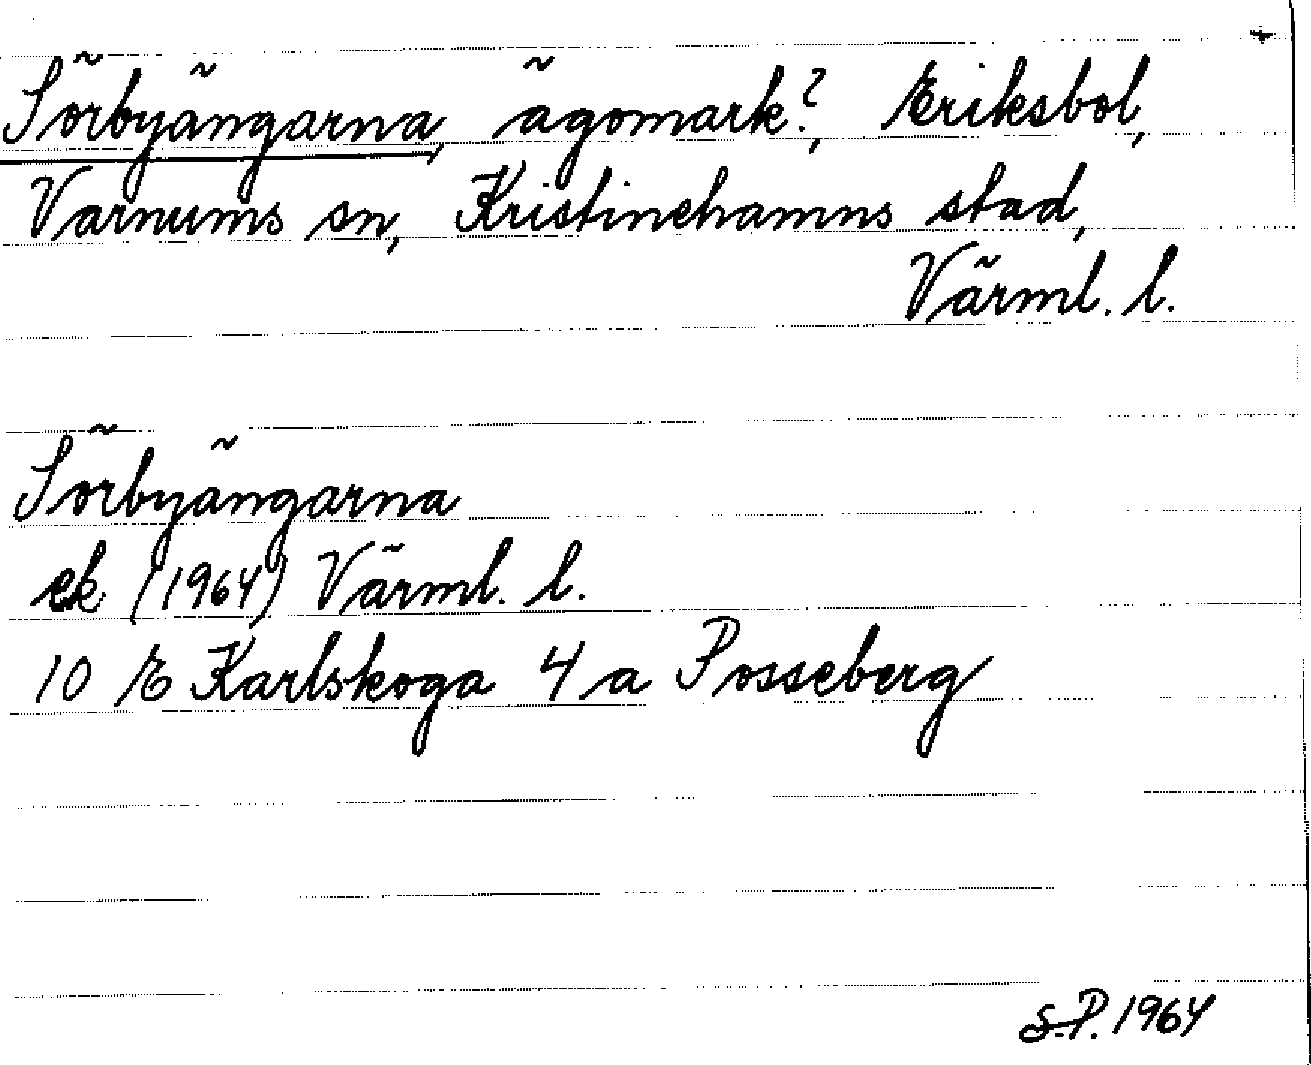 +
Sörbyängarna, ägomark?, Eriksbol,
Varnums sn, Kristinehamns stad,
Värml. l.
Sörbyängarna
ek (1964) Värml. l.
10 E Karlskoga 4 a Posseberg
S.P. 1964